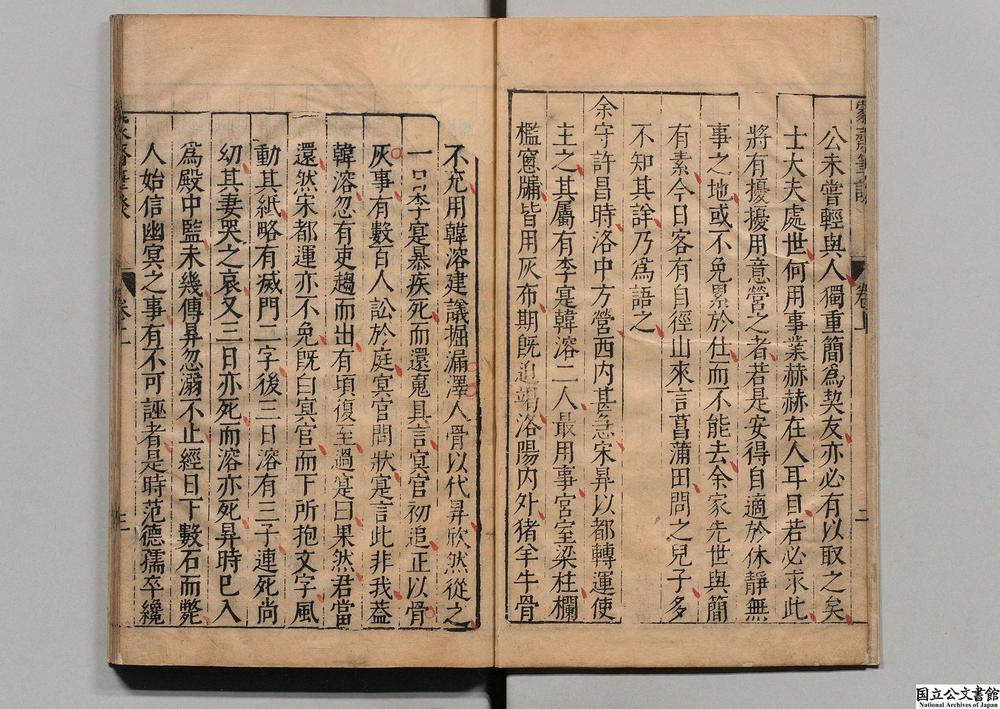 公未曾輕與人獨重簡為契友亦必有以取之矣
士大夫處世何用事業赫赫在人耳目若必求此
將有擾擾用意營之者若是安得自適於休靜無
事之地或不免累於仕而不能去余家先世與簡
有素今日客有自徑山來言菖蒲田問之兒子多
不知其詳乃為語之
余守許昌時洛中方營西内甚急宋昇以都轉運使
主之其屬有李寔韓溶二人最用事宮室梁柱欄
檻窻牖皆用灰布期旣迫竭洛陽内外猪羊牛骨
不充用韓溶建議掘漏澤人骨以代昇欣然從之
一日李寔暴疾死而還䰟具言冥官初追正以骨
灰事有數百人訟於庭冥官問狀寔言此非我蓋
韓溶忽有吏趨而出有頃復至過寔曰果然君當
還然宋都運亦不免旣白冥官而下所抱文字風
動其紙略有滅門二字後三日溶有三子連死尚
幼其妻哭之哀又三日亦死而溶亦死昇時已入
為殿中監未幾傳昇忽溺不止經日下數石而斃
人始信幽冥之事有不可誣者是時范德孺卒纔
卷上
二
三
国立公文書館
National Archives of Japan